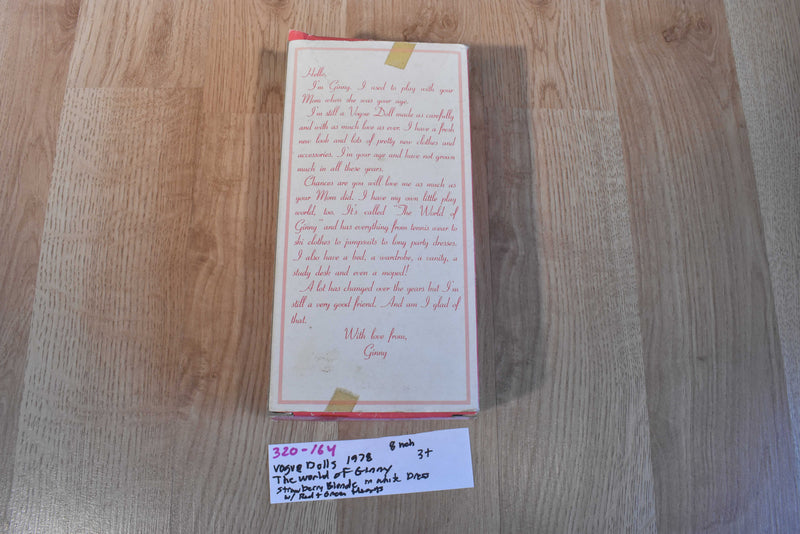 Hello,
I'm Ginny. I used to play with your
Mom when she was your age.
I'm still a Vogue Doll made as carefully
and with as much love as ever. I have a fresh
new look and lots of pretty new clothes and
accessories. I'm your age and have not grown
much in all these years.
Chances are you will love me as much as
your Mom did. I have my own little play
world, too. It's called "The World of
Ginny" and has everything from tennis wear to
ski clothes to jumpsuits to long party dresses.
I also have a bed, a wardrobe, a vanity, a
study desk and even a moped!
A lot has changed over the years but I'm
still a very good friend. And am I glad of
that.
With love from,
Ginny
320-164 8 inch
Vogue Dolls 1978 3+
The World of Ginny
Strawberry Blonde in white Dress
w/ Red + Green